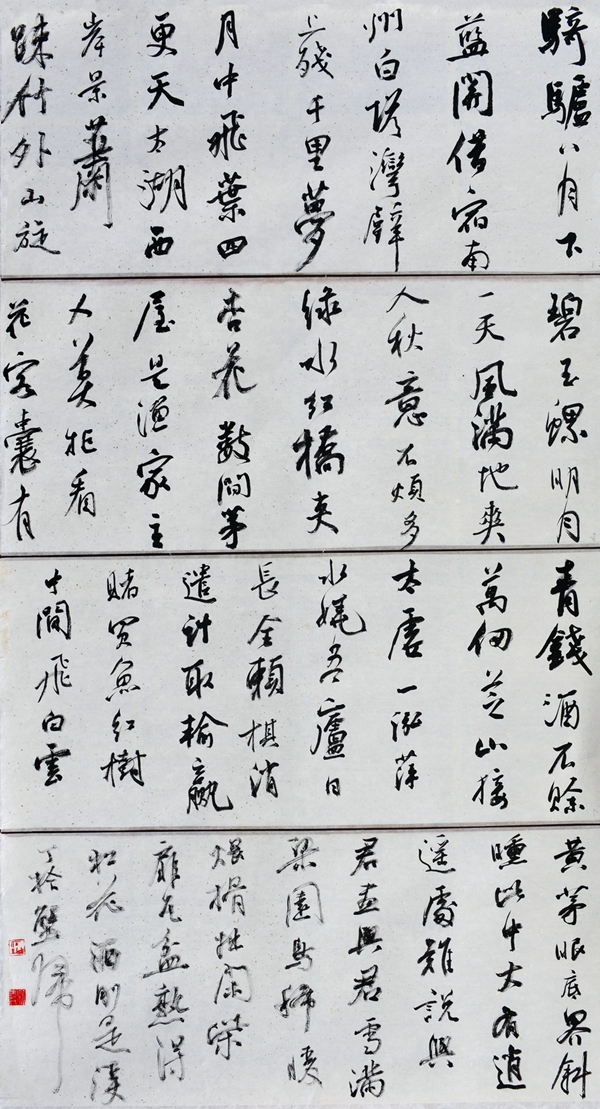 騎驢八月下
藍開借宿南
州白塔灣壁
上殘千里夢
月中飛葉四
更天太湖西
岸景蕭
疎竹外山旋
碧玉螺明月
一天風滿地爽
人秋意不須多
綠水紅橋夾
杏花數間茅
屋是漁家主
人莫拒看
花客囊有
青錢酒不賒
萬仞芝山接
太虛一泓萍
水繞吾廬日
長全賴棋消
遣計取輸贏
賭買魚紅樹
中間飛白雲
黃茅眼底界斜
曛此中大有逍
遙處難說與
君畫與君雪滿
梁園鳥稀暖
煨榾柮閉柴
扉瓦盆熟得
松花酒剛是溪
丁拾蟹歸